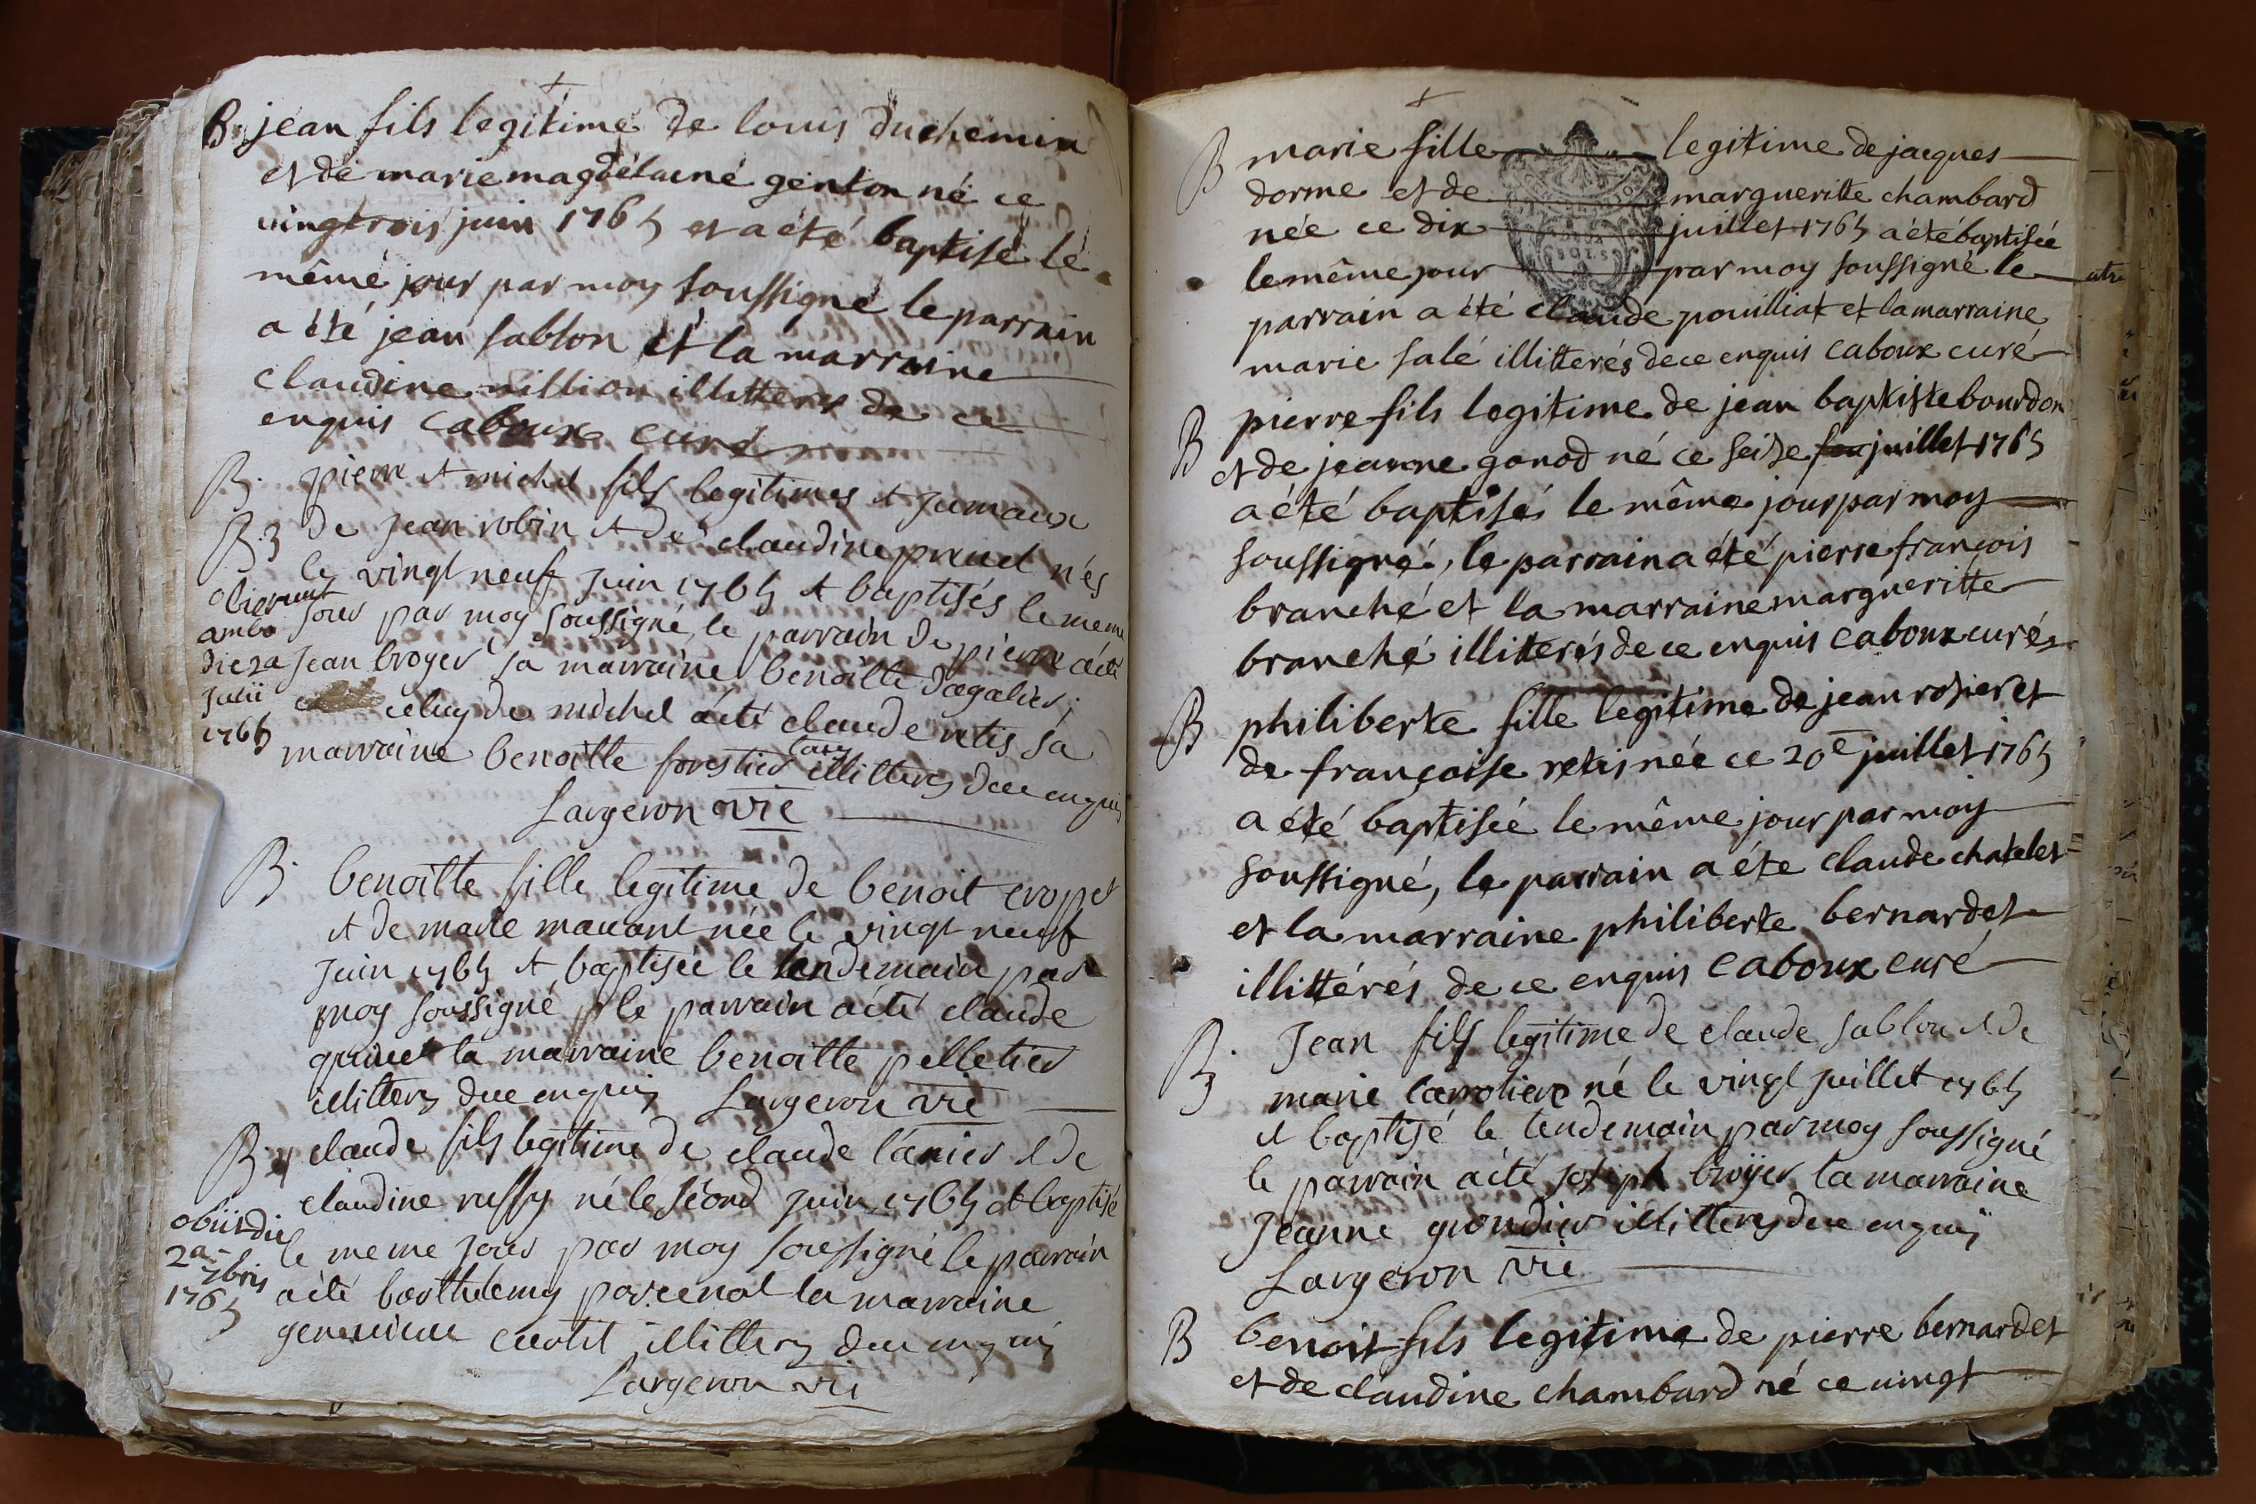 B jean fils legitime de louis duchemin
et de marie magdelaine genton né ce
vingtrois juin 1765 et a été baptisé le
même jour par moy soussigné le parrain
a été jean sablon et la marraine
claudine million illitterés de ce
enquis caboux curé
B. pierre et michel fils legitimes et jumaux
B. de jean robin et de claudine pruuel nés
le vingt neuf juin 1765 et baptisés le meme
jour par moy soussigné, le parrain de pierre a été
jean broyer sa marraine benoitte dagalier;
celuy de michel a été claude retis sa
marraine benoitte forestier illitterés de ce enquis
obierunt
ambo
die 2a
julii
1765
Largeron vie
B. benoitte fille legitime de benoit cropet
et de marie mavant née le vingt neuf
juin 1765 et baptisée le lendemain par
moy soussigné le parrain a été claude
la marraine benoitte pelletier
illitterés de ce enquis Largeron vie
B. claude fils legitime de claude lanier et de
claudine ruffy né le second juin 1765 et baptisé
le meme jour par moy soussigné le parrain
a été barthelemy la marraine
genevieve illitterés de ce enquis
obiit die
2a 7bris
1765
Largeron vie
B marie fille legitime de jacques
dorme et de margueritte chambard
née ce dix juillet 1765 a été baptisée
le même jour par moy soussigné le
parrain a été claude pouilliat et la marraine
marie salé illitterés de ce enquis caboux curé
B pierre fils legitime de jean baptiste bourdon
et de jeanne gonod né ce seize juillet 1765
a été baptisé le même jour par moy
soussigné, le parrain a été pierre françois
branché et la marraine margueritte
branché illitterés de ce enquis caboux curé
B philiberte fille legitime de jean rosier et
de françoise retis née ce 20e juillet 1765
a été baptisée le même jour par moy
soussigné, le parrain a éte claude chatelet
et la marraine philiberte bernardet
illittérés de ce enquis caboux curé
B. Jean fils legitime de claude sablon et de
marie né le vingt juillet 1765
et baptisé le lendemain par moy soussigné
le parrain a été joseph broyer la marraine
Jeanne illitterés de ce enquis
Largeron vie
B benoit fils legitime de pierre bernardet
et de claudine chambard né ce vingt